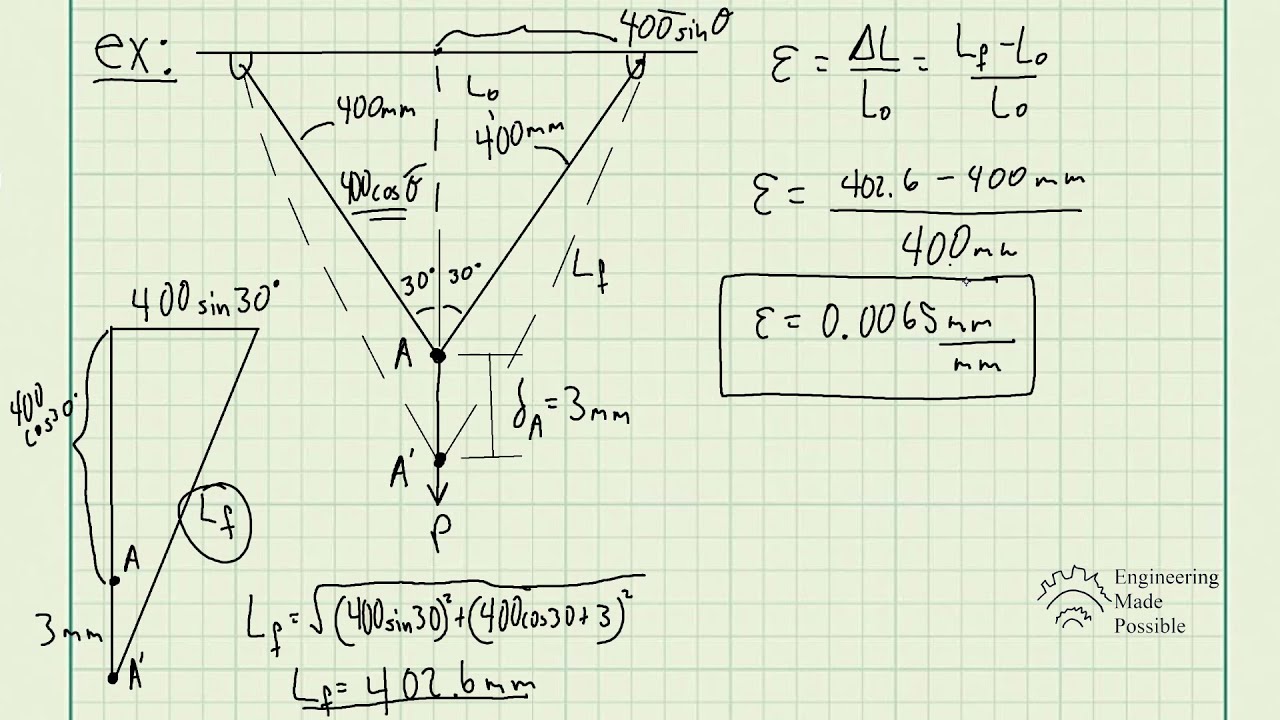 ex:
400 sin θ
L₀
400mm
400mm
400cosθ
30° 30°
L_f
A
δ_A = 3mm
A'
P
400 sin30°
400 cos30°
L_f
A
3mm
A'
L_f = √((400sin30)² + (400cos30+3)²)
L_f = 402.6mm
ε = ΔL/L₀ = (L_f - L₀)/L₀
ε = (402.6 - 400mm)/400mm
ε = 0.0065 mm/mm
Engineering
Made
Possible